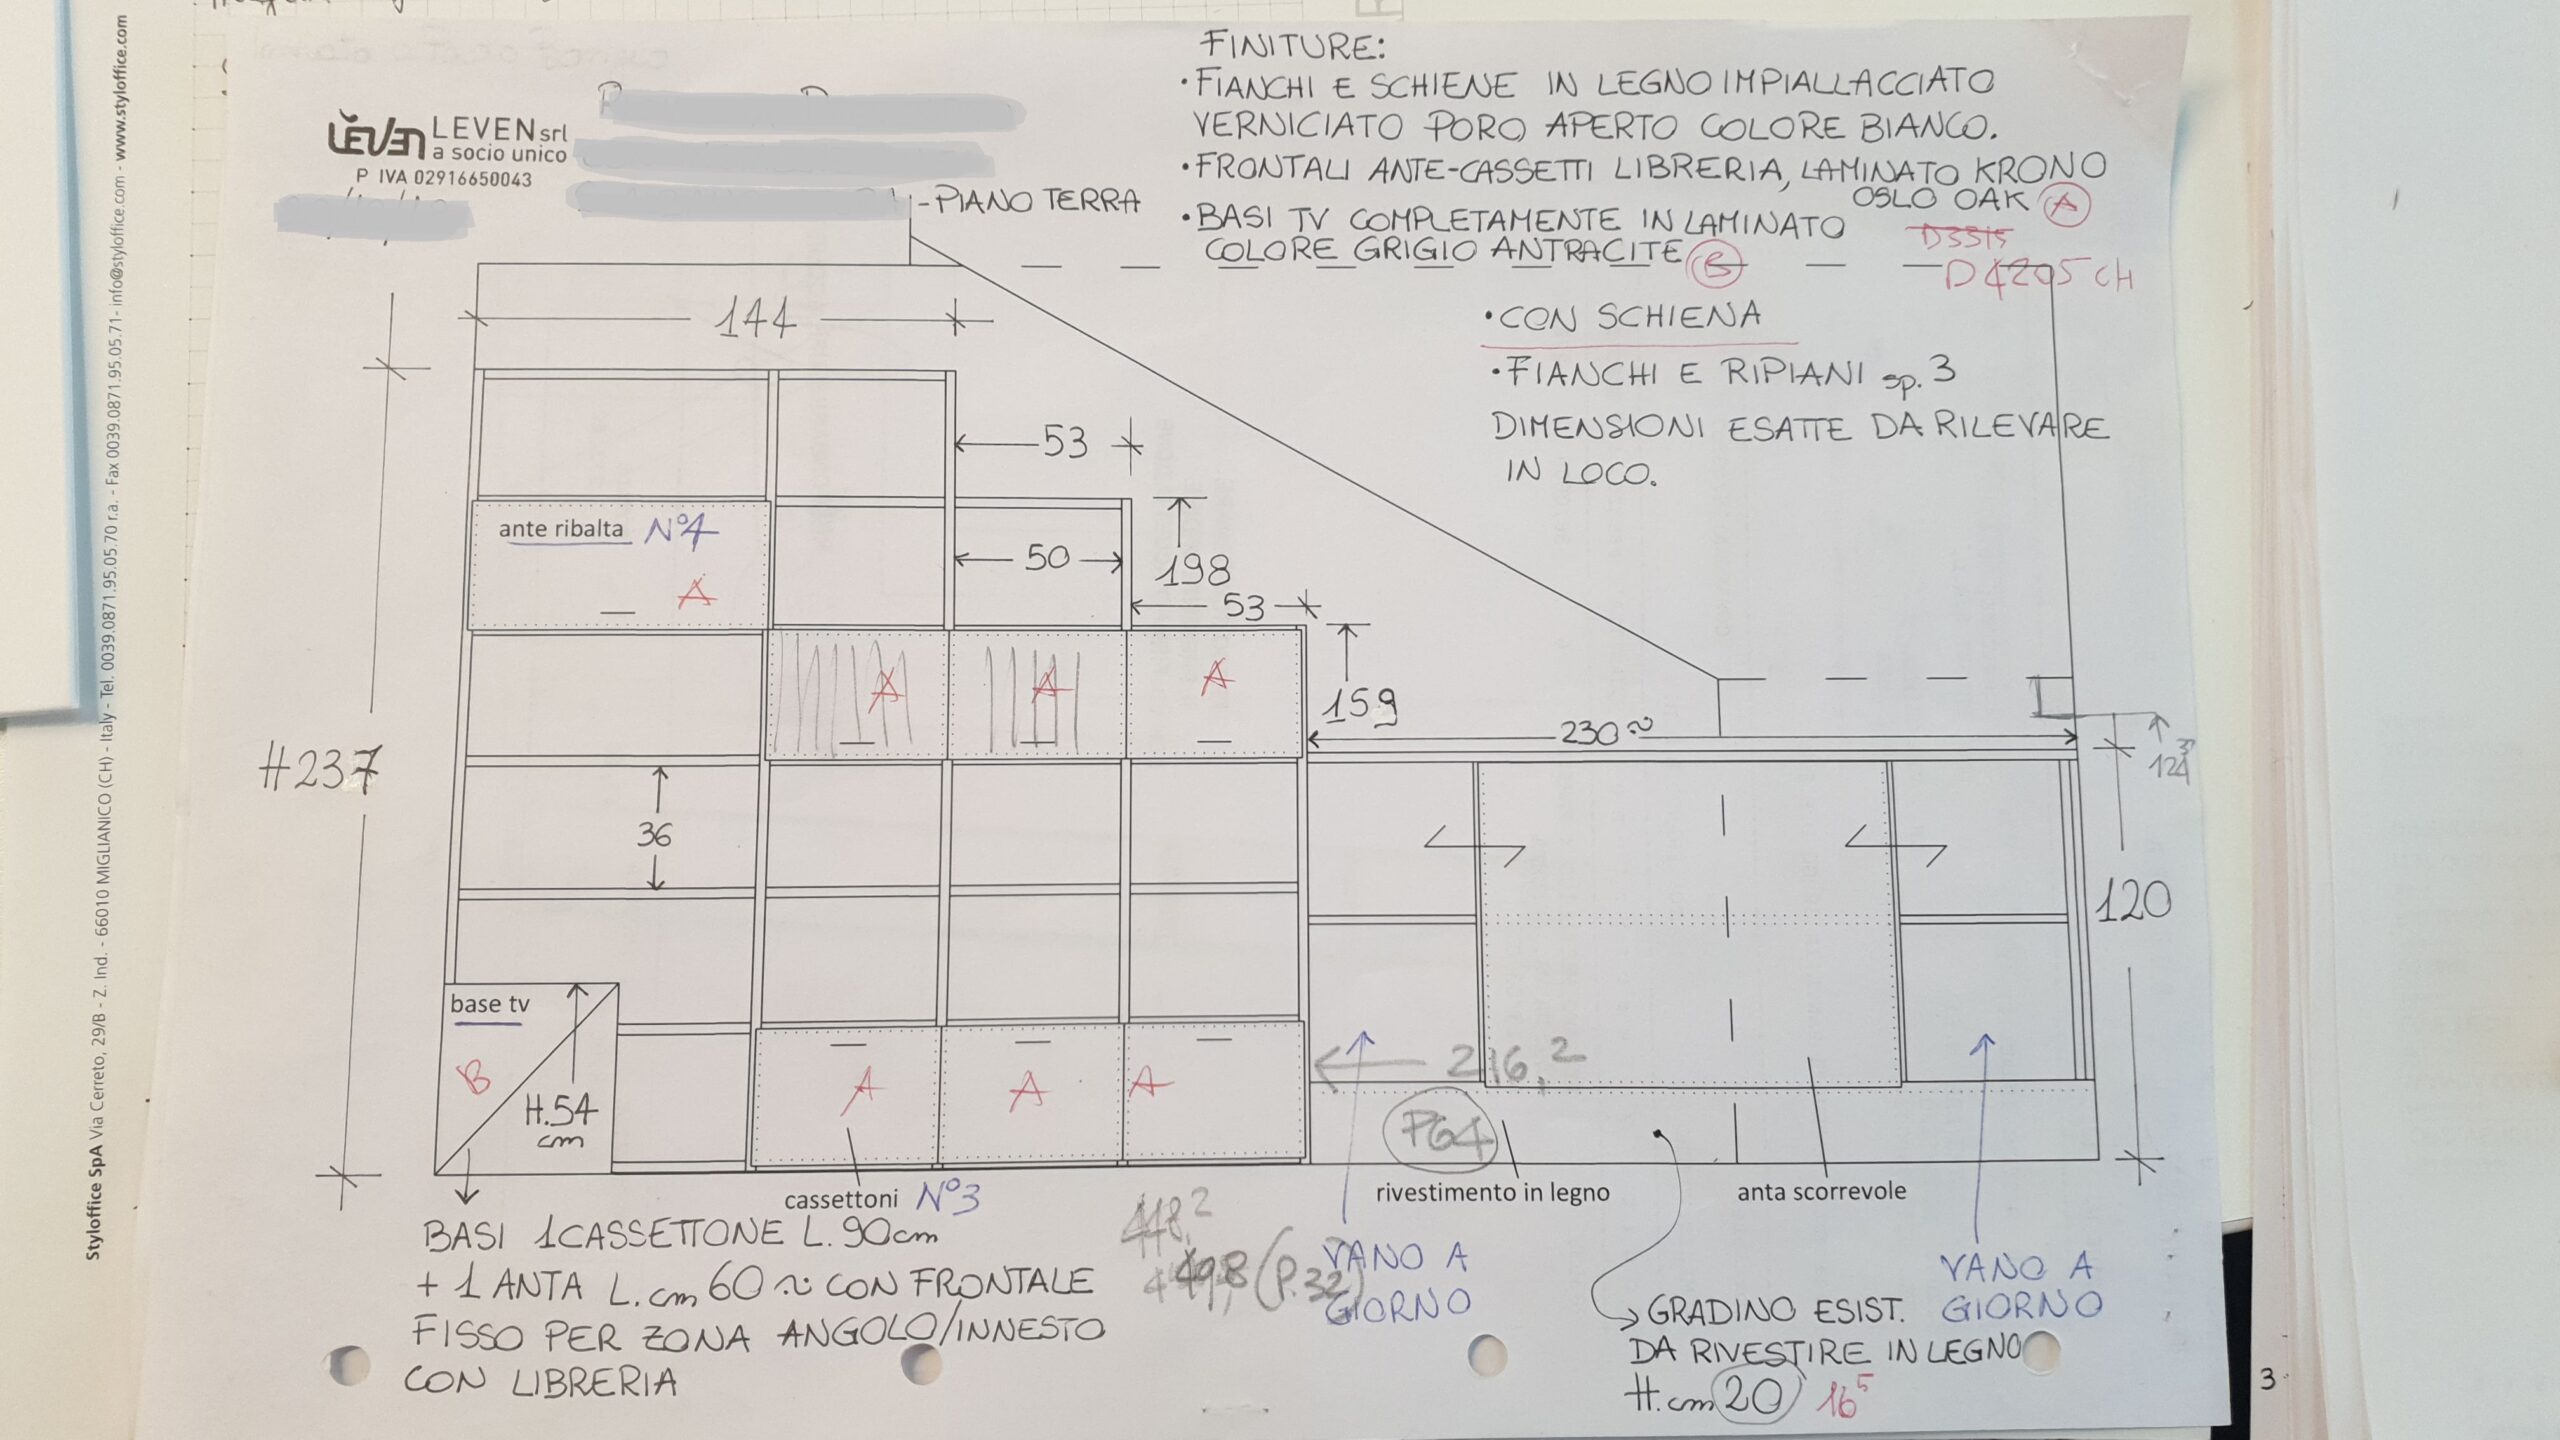 FINITURE:
• FIANCHI E SCHIENE IN LEGNO IMPIALLACCIATO
VERNICIATO PORO APERTO COLORE BIANCO.
• FRONTALI ANTE-CASSETTI LIBRERIA, LAMINATO KRONO
OSLO OAK A
• BASI TV COMPLETAMENTE IN LAMINATO
COLORE GRIGIO ANTRACITE B
D3315
D4205 CH
LEVEN LEVEN srl
a socio unico
P IVA 02916650043
- PIANO TERRA
• CON SCHIENA
• FIANCHI E RIPIANI sp. 3
DIMENSIONI ESATTE DA RILEVARE
IN LOCO.
144
53
ante ribalta N°4
A
50
198
53
A
A
A
159
230 ~
H237
36
120
base tv
B
H.54
cm
A
A
A
216,2
P64
cassettoni N°3
rivestimento in legno
anta scorrevole
BASI 1 CASSETTONE L. 90cm
+ 1 ANTA L. cm 60 ~ CON FRONTALE
FISSO PER ZONA ANGOLO/INNESTO
CON LIBRERIA
418,2
498 (P.32)
VANO A
GIORNO
VANO A
GIORNO
GRADINO ESIST.
DA RIVESTIRE IN LEGNO
H. cm 20 165
Styloffice SpA Via Cerreto, 29/B - Z. Ind. - 66010 MIGLIANICO (CH) - Italy - Tel. 0039.0871.95.05.70 r.a. - Fax 0039.0871.95.05.71 - info@styloffice.com - www.styloffice.com
3